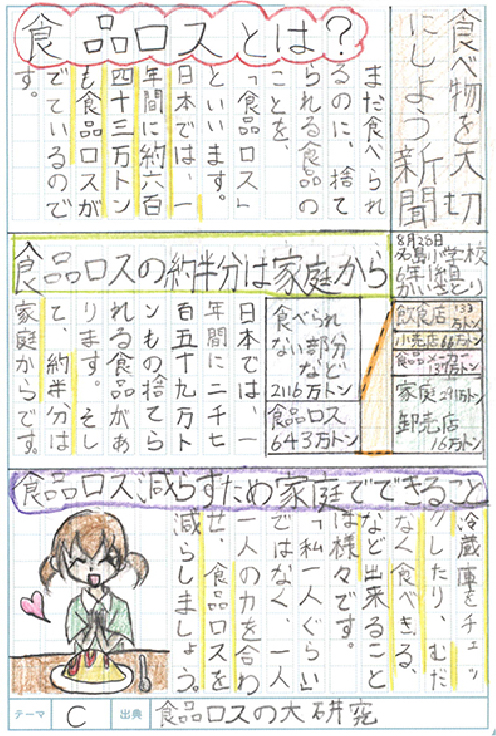 食べ物を大切
にしよう新聞
食品ロスとは?
まだ食べられ
るのに、捨て
られる食品の
ことを、
「食品ロス」
といいます。
日本では、一
年間に約六百
四十三万トン
も食品ロスが
でているので
す。
8月28日
小学校
6年1組
食品ロスの約半分は家庭から
飲食店 133万トン
小売店 66万トン
食品メーカー 137万トン
家庭 291万トン
卸売店 16万トン
食べられない部分など
2116万トン
食品ロス
643万トン
日本では、一
年間に二千七
百五十九万ト
ンもの捨てら
れる食品があ
ります。そし
て、約半分は
家庭からです。
食品ロス、減らすため家庭でできること
冷蔵庫をチェッ
クしたり、むだ
なく食べきる、
など出来ること
は様々です。
「私一人ぐらい」
ではなく、一人
一人の力を合わ
せ、食品ロスを
減らしましょう。
テーマ C 出典 食品ロスの大研究